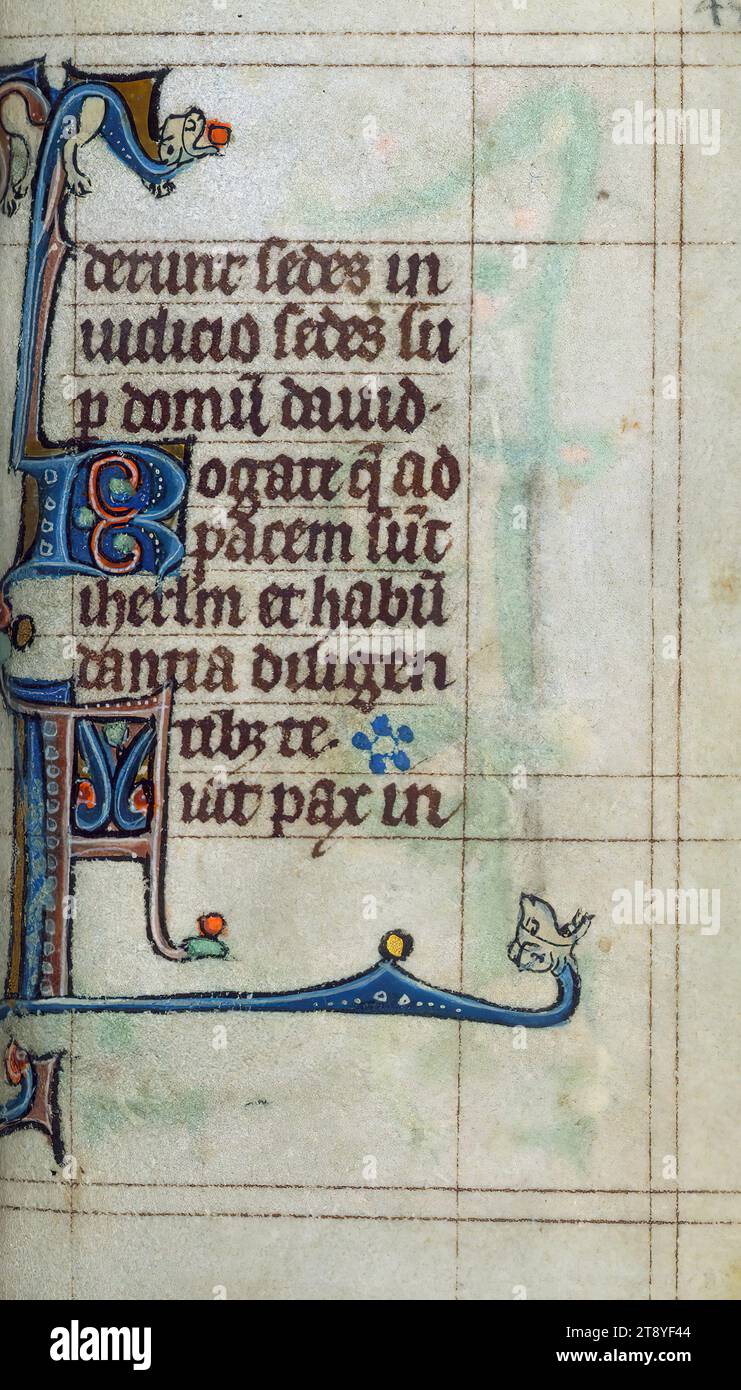 derunt sedes in
iudicio sedes su
ꝑ domū dauid·
Rogate q̄ ad
pacem sūt
iherlm̄ et habū
dantia diligen
tibꝫ te·
Fiat pax in
alamy
alamy
alamy
alamy
alamy
Image ID: 2T8YF44
www.alamy.com